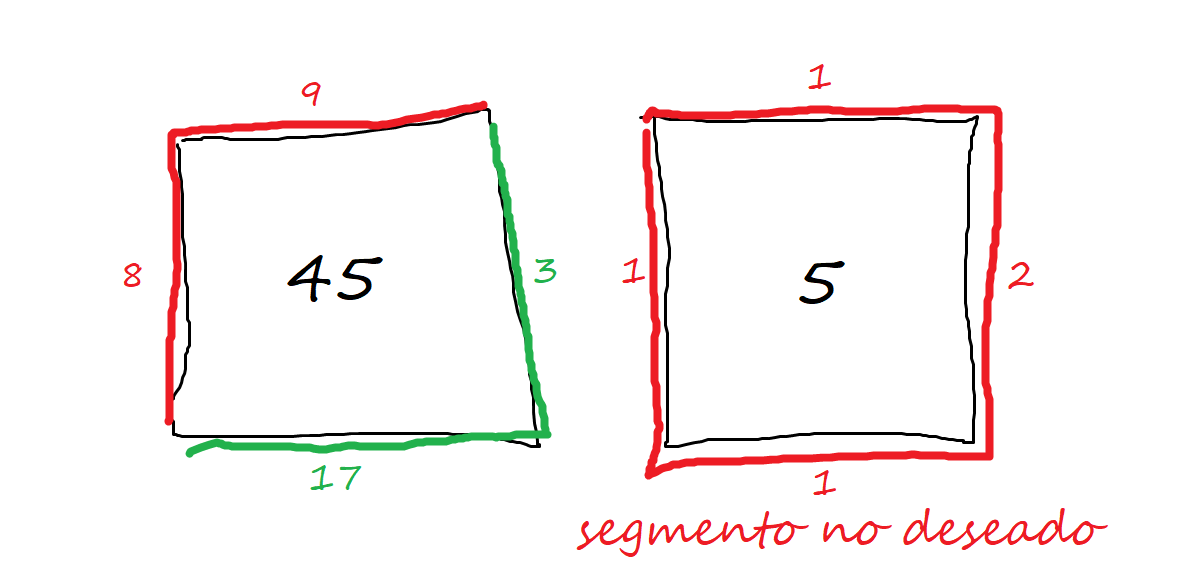 9
1
8
45
3
1
5
2
17
1
segmento no deseado